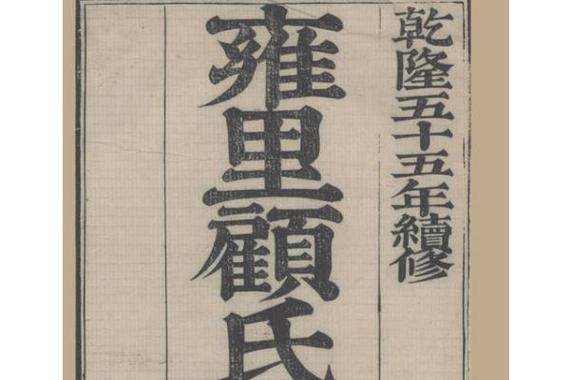 乾隆五十五年續修
雍里顧氏